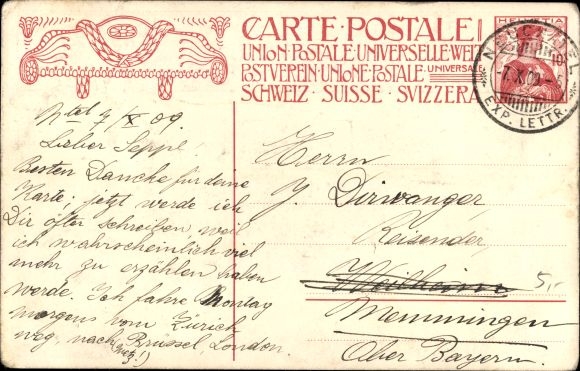 CARTE POSTALE
UNION·POSTALE·UNIVERSELLE·WELT
POSTVEREIN·UNIONE·POSTALE·UNIVERSALE
SCHWEIZ · SUISSE · SVIZZERA
HELVETIA
10
NEUCHATEL
-7.X.09.-5
EXP. LETTR.
Ntel 7/X 09.
Lieber Seppl!
Besten Dancke für deine
Karte; jetzt werde ich
Dir öfter schreiben, weil
ich wahrscheinlich viel
mehr zu erzählen haben
werde. Ich fahre Montag
morgens vom Zürich
weg, nach Brüssel, London.
Herrn
J. Dirwanger,
Reisender,
Weilheim
5,-
Memmingen
Ober Bayern.